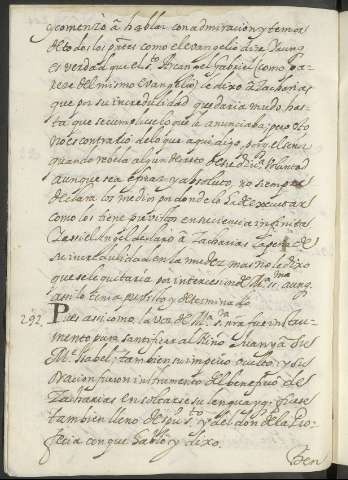 y comenzò à hablar con admiracion y temor
de todos los pres̃tes como el evangelio dize. Y aunq̃
es verdad que el s.to Arcangel Gabriel (como pa-
reze del mismo Evangelio) le dixo à Zacharias
que por su incredulidad quedaria mudo, has-
ta que se cumpliese lo que le anunciaba; pero esto
no es contrario de lo que aqui digo, porq̃ el Señor
quando revela algun decreto de su div.ª Voluntad
aunque sea eficaz y absoluto, no siempre
declara los medios por donde lo hà de executar
como los tiene previstos en su ciencia infinita
Y assi el Angel declarò à Zacharias la pena de
su incredulidad en la mudez mas no le dixo
que se la quitaria por intercesion de M.ª ss.ma aunq̃
assi lo tenia previsto y determinado
292. Pues assi como, la voz de M.ª S.ra nr̃a fue instru-
mento para santificar al Niño Juan y à su
M.e Isabel; tambien su imperio oculto, y su
oracion fueron instrumento del beneficio de
Zacharias en soltarse su lengua y q̃ fuese
tambien lleno de spu s.to y del don de la Pro-
fecia con que hablò y dixo.
Ben